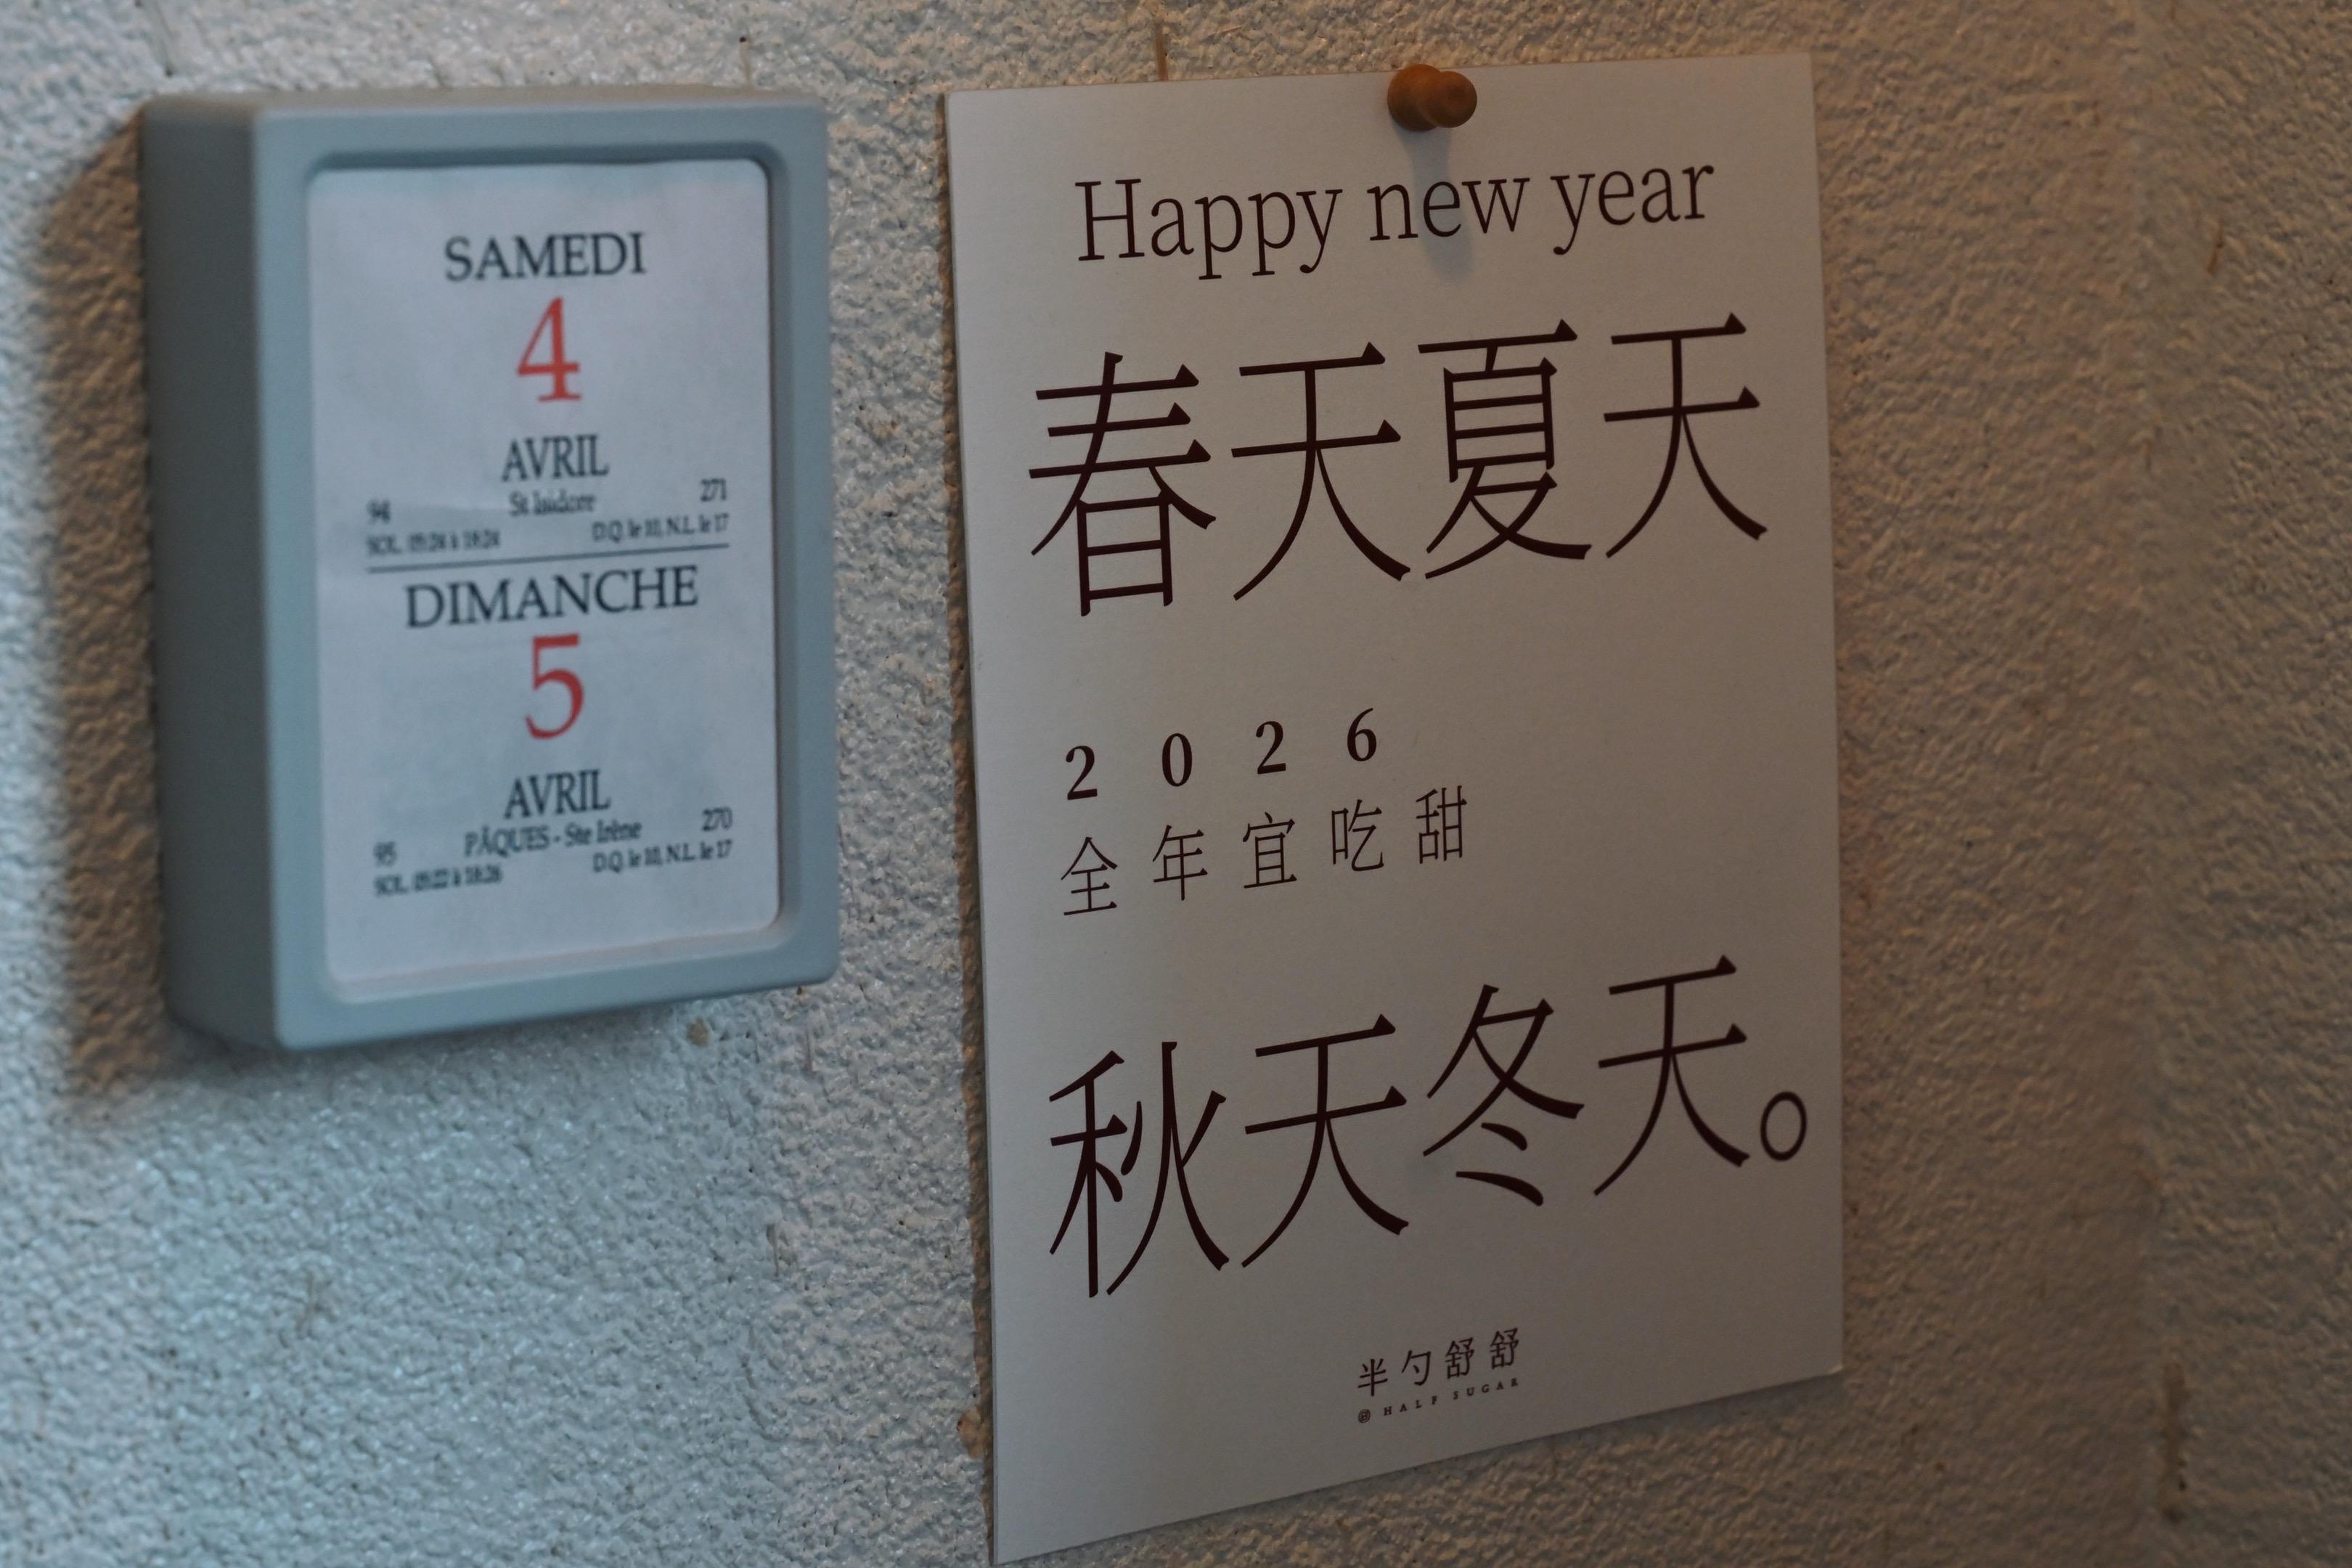 SAMEDI
4
AVRIL
St Isidore
94 271
SOL. 05:24 à 18:24 D.Q. le 10, N.L. le 17
DIMANCHE
5
AVRIL
PÂQUES - Ste Irène
95 270
SOL. 05:22 à 18:26 D.Q. le 10, N.L. le 17
Happy new year
春天夏天
2026
全年宜吃甜
秋天冬天。
半勺舒舒
@ HALF SUGAR